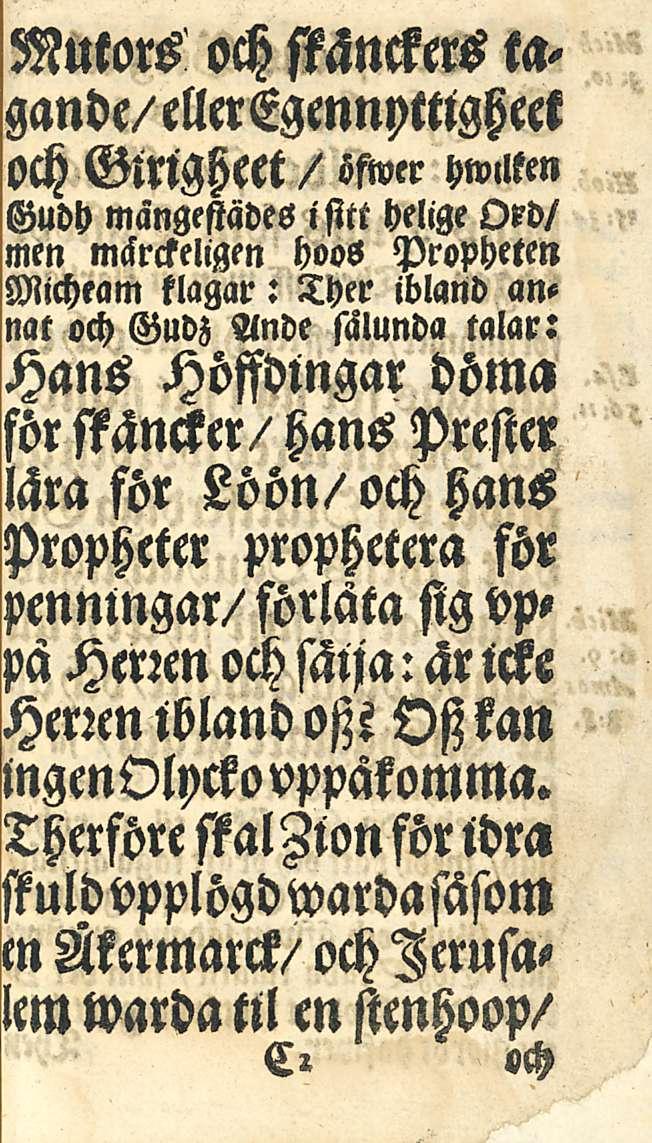 Mutors och skänckers ta-
gande/ eller Egennyttigheet
och Girigheet / öfwer hwilken
Gudh mångestädes i sitt helige Ord/
men märckeligen hoos Propheten
Micheam klagar : Ther ibland an-
nat och Gudz Ande sålunda talar:
Hans Höffdingar döma
för skäncker/ hans Prester
lära för Löön/ och hans
Propheter prophetera för
penningar/ förlåta sig vp-
på Herren och säija: är icke
Herren ibland oß? Oß kan
ingen Olycko vppåkomma.
Therföre skal Zion för idra
skuld vpplögd warda såsom
en Åkermarck/ och Jerusa-
lem warda til en stenhoop/
C 2 och